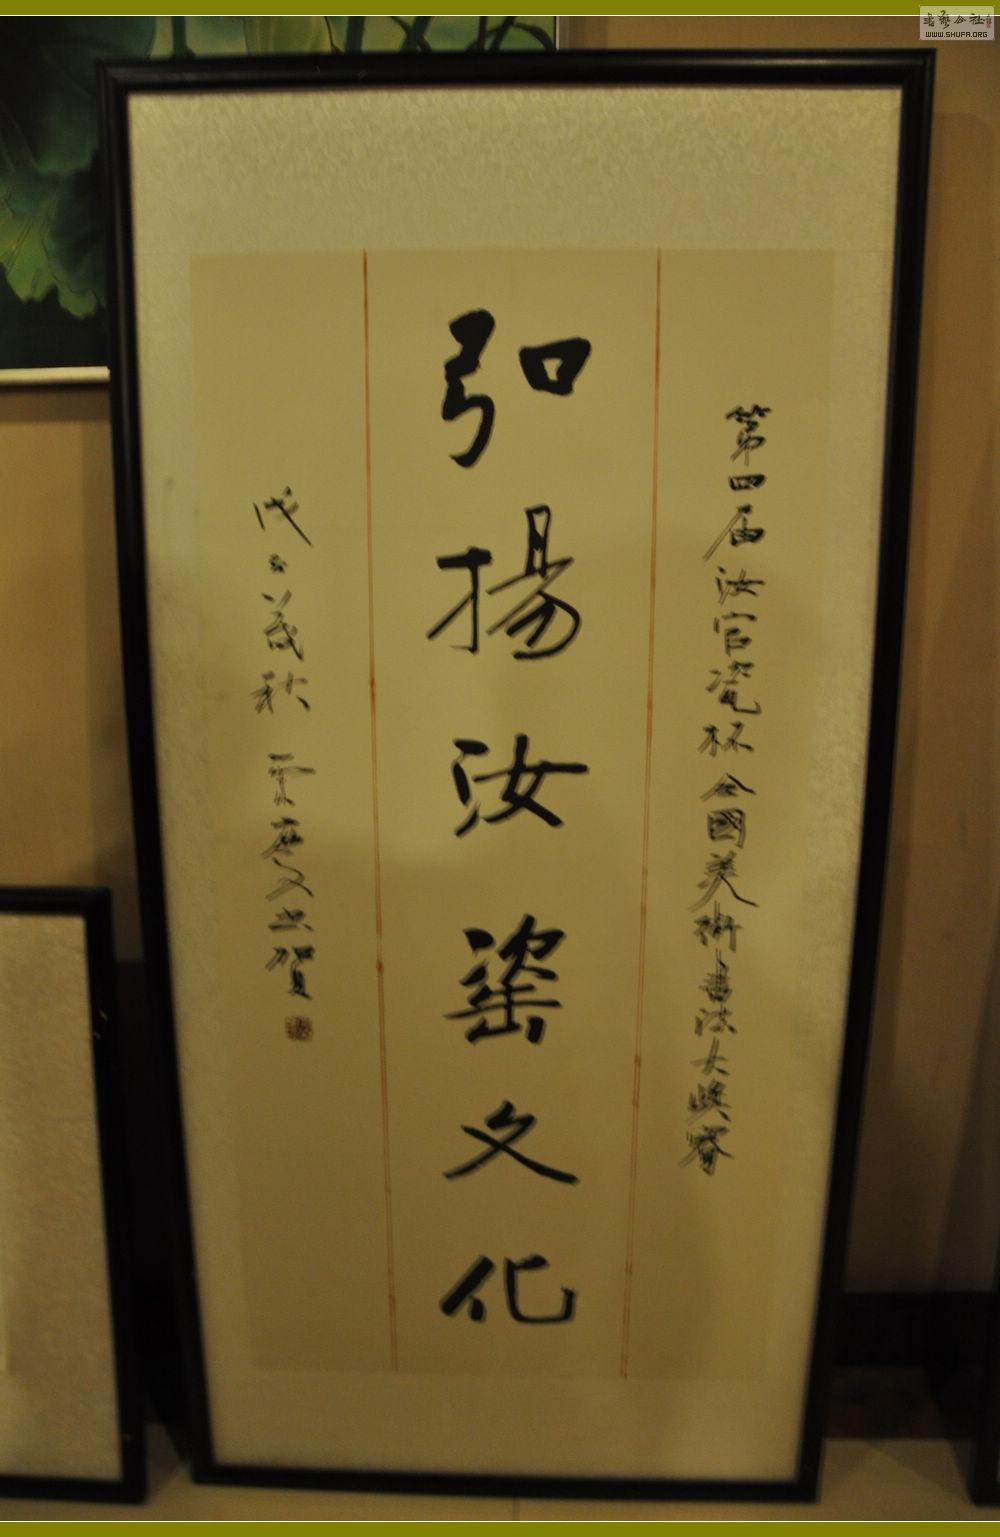 书艺公社
WWW.SHUFA.ORG
第四届汝官瓷杯全國美術書法大奨賽
弘揚汝瓷文化
戊子歲秋 慶文书賀